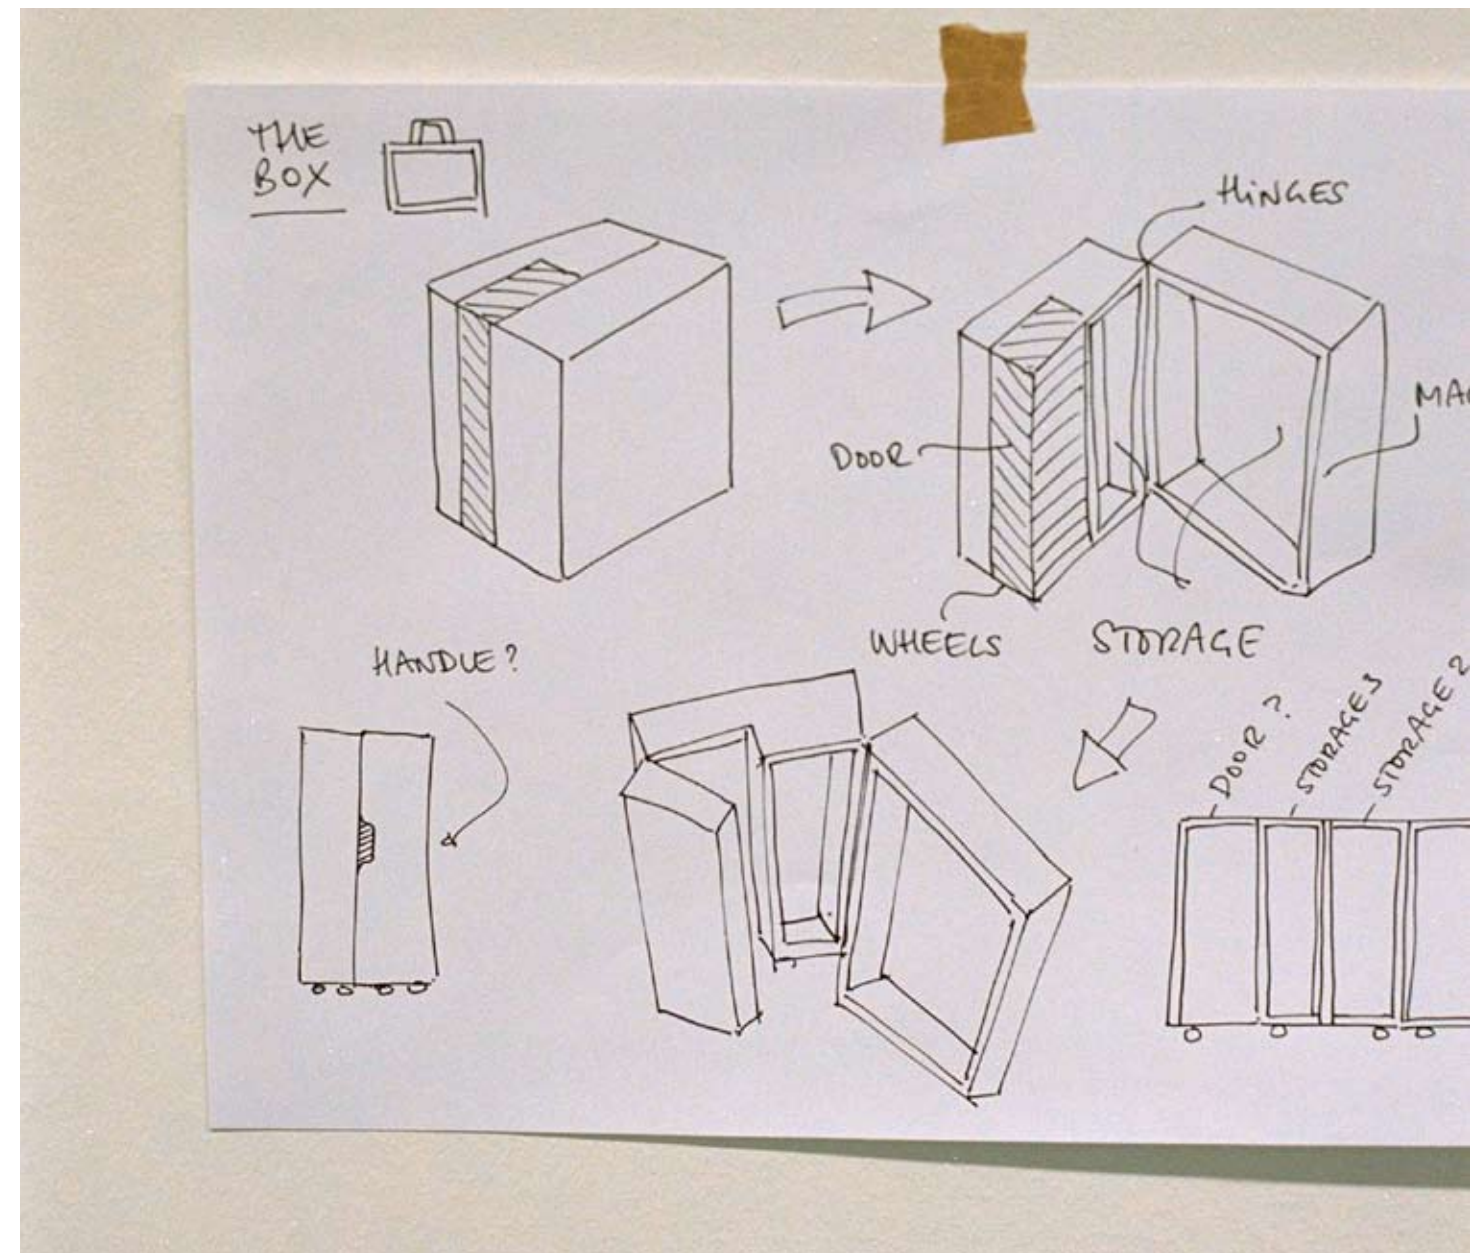 THE
BOX
HINGES
DOOR
WHEELS
STORAGE
HANDLE?
DOOR?
STORAGE3
STORAGE 2